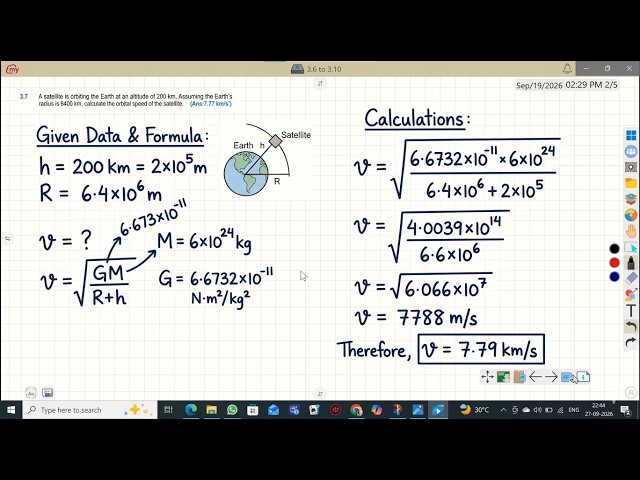 my
3.6 to 3.10
Sep/19/2026 02:29 PM 2/5
3.7 A satellite is orbiting the Earth at an altitude of 200 km. Assuming the Earth's
radius is 6400 km, calculate the orbital speed of the satellite. (Ans:7.77 km/s¹)
Given Data & Formula:
h = 200 km = 2×10⁵m
R = 6.4×10⁶ m
6.673×10⁻¹¹
v = ?
M = 6×10²⁴kg
v = √(GM/R+h)
G = 6.6732×10⁻¹¹
N·m²/kg²
Satellite
Earth h
R
Calculations:
v = √(6.6732×10⁻¹¹×6×10²⁴/6.4×10⁶ + 2×10⁵)
v = √(4.0039×10¹⁴/6.6×10⁶)
v = √(6.066×10⁷)
v = 7788 m/s
Therefore, v = 7.79 km/s
Type here to search
30°C
ENG
22:44
27-09-2026